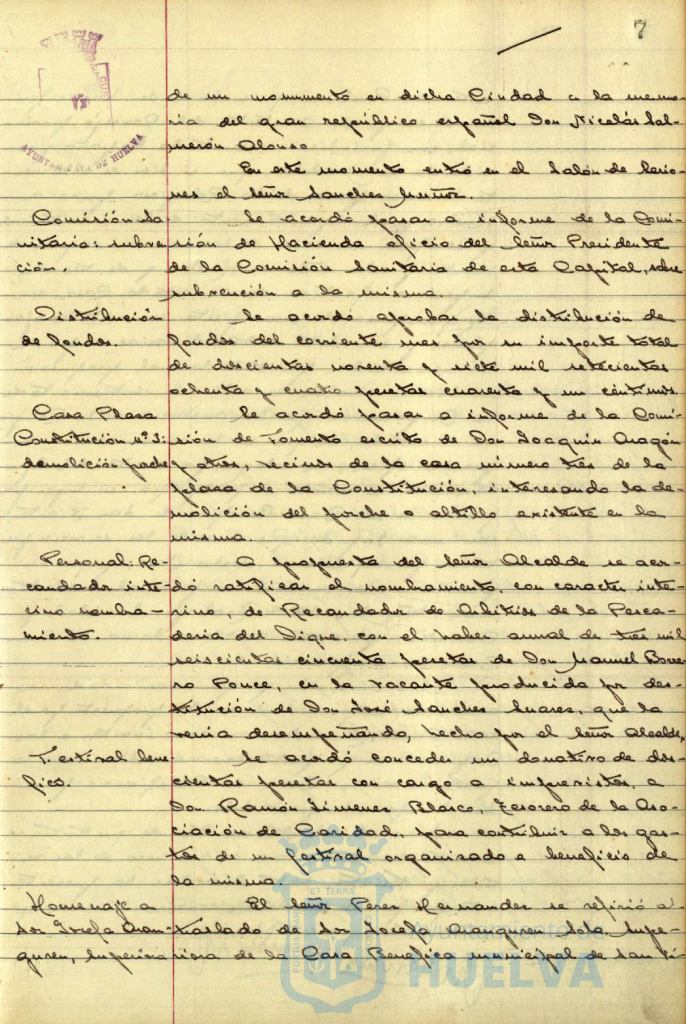 7
AYUNTAMIENTO DE HUELVA
de un monumento en dicha Ciudad a la memo-
ria del gran repúblico español Don Nicolás Sal-
merón Alonso
En este momento entró en el Salón de Sesio-
nes el Señor Sanchez Muñoz.
Comisión Sa-
nitaria: subven-
ción.
Se acordó pasar a informe de la Comi-
sión de Hacienda oficio del Señor Presidente
de la Comisión Sanitaria de esta Capital, sobre
subvención a la misma.
Distribución
de fondos.
Se acordó aprobar la distribución de
fondos del corriente mes por su importe total
de doscientas noventa y siete mil setecientas
ochenta y cuatro pesetas cuarenta y un céntimos.
Casa Plaza
Constitución nº 3:
demolición porche
Se acordó pasar a informe de la Comi-
sión de Fomento escrito de Don Joaquin Aragón
y otros, vecinos de la casa número tres de la
plaza de la Constitución, interesando la de-
molición del porche o altillo existente en la
misma.
Personal: Re-
caudador inte-
rino nombra-
miento.
A propuesta del Señor Alcalde se acor-
dó ratificar el nombramiento, con caracter inte-
rino, de Recaudador de Arbitrios de la Pesca-
deria del Dique, con el haber anual de tres mil
seiscientas cincuenta pesetas de Don Manuel Borre-
ro Ponce, en la vacante producida por des-
titución de Don José Sanchez Suarez, que la
venia desempeñando, hecho por el Señor Alcalde.
Festival bene-
fico.
Se acordó conceder un donativo de dos-
cientas pesetas con cargo a imprevistos, a
Don Ramón Jimenez Blasco, Tesorero de la Aso-
ciación de Caridad, para contribuir a los gas-
tos de un festival organizado a beneficio de
la misma.
Homenaje a
Sor Josefa Aran-
guren, Superiora
El Señor Perez Hernandez se refirió al
traslado de Sor Josefa Aranguren Sota, Supe-
riora de la Casa Benefica municipal de San
Ayuntamiento de
HUELVA